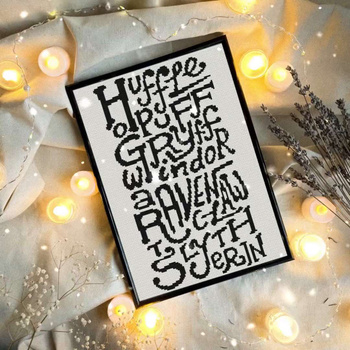 Huffle
o puFF
GRyff
w indor
a
RAVEN
CLAW
T SLyTH
ERIN